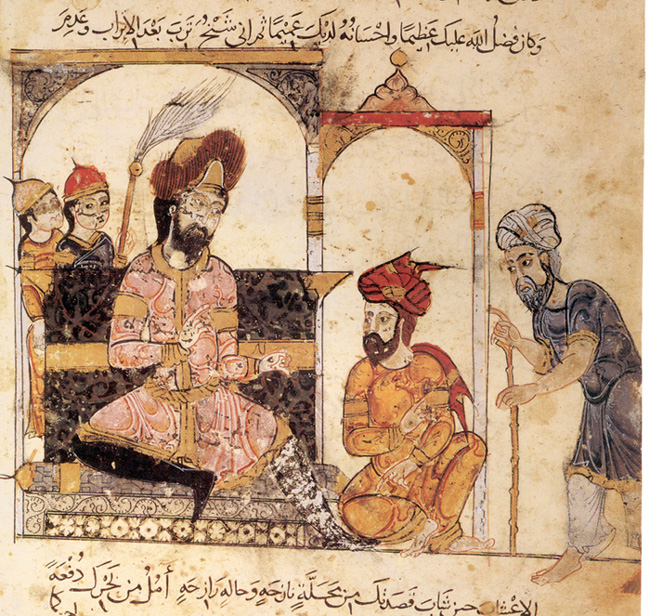 وكان فضل الله عليك عظيما واحسانه لديك عميما ثم اني شيخ ترب بعد الاتراب وعدم
الاعشاب حين شاب قصدتك من محلة نازحة وحالة رازحة أمل من بحرك دفعة